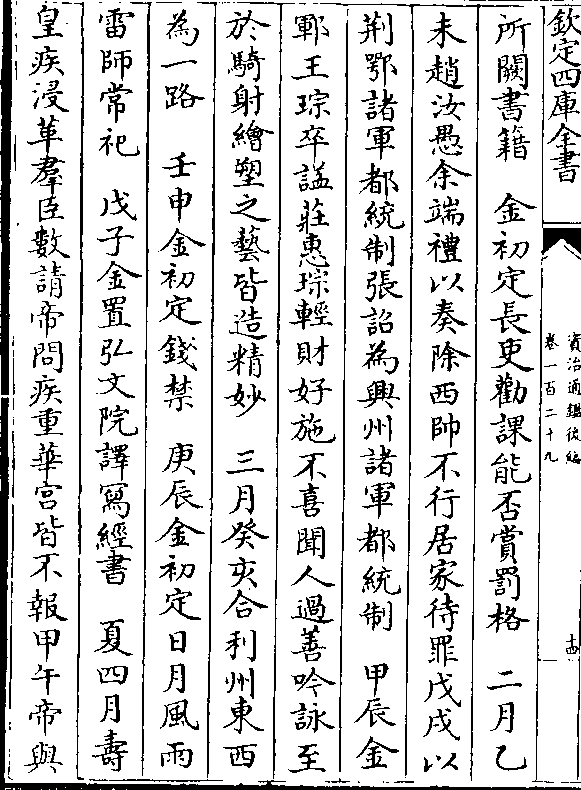 欽定四庫全書
資治通鑑後編
卷一百二十九
十四
所闕書籍　金初定長吏勸課能否賞罰格　二月乙
未趙汝愚余端禮以奏除西帥不行居家待罪戊戌以
荆鄂諸軍都統制張詔為興州諸軍都統制　甲辰金
鄆王琮卒諡莊惠琮輕財好施不喜聞人過善吟詠至
於騎射繪塑之藝皆造精妙　三月癸亥合利州東西
為一路　壬申金初定錢禁　庚辰金初定日月風雨
雷師常祀　戊子金置弘文院譯寫經書　夏四月壽
皇疾浸革羣臣數請帝問疾重華宮皆不報甲午帝與